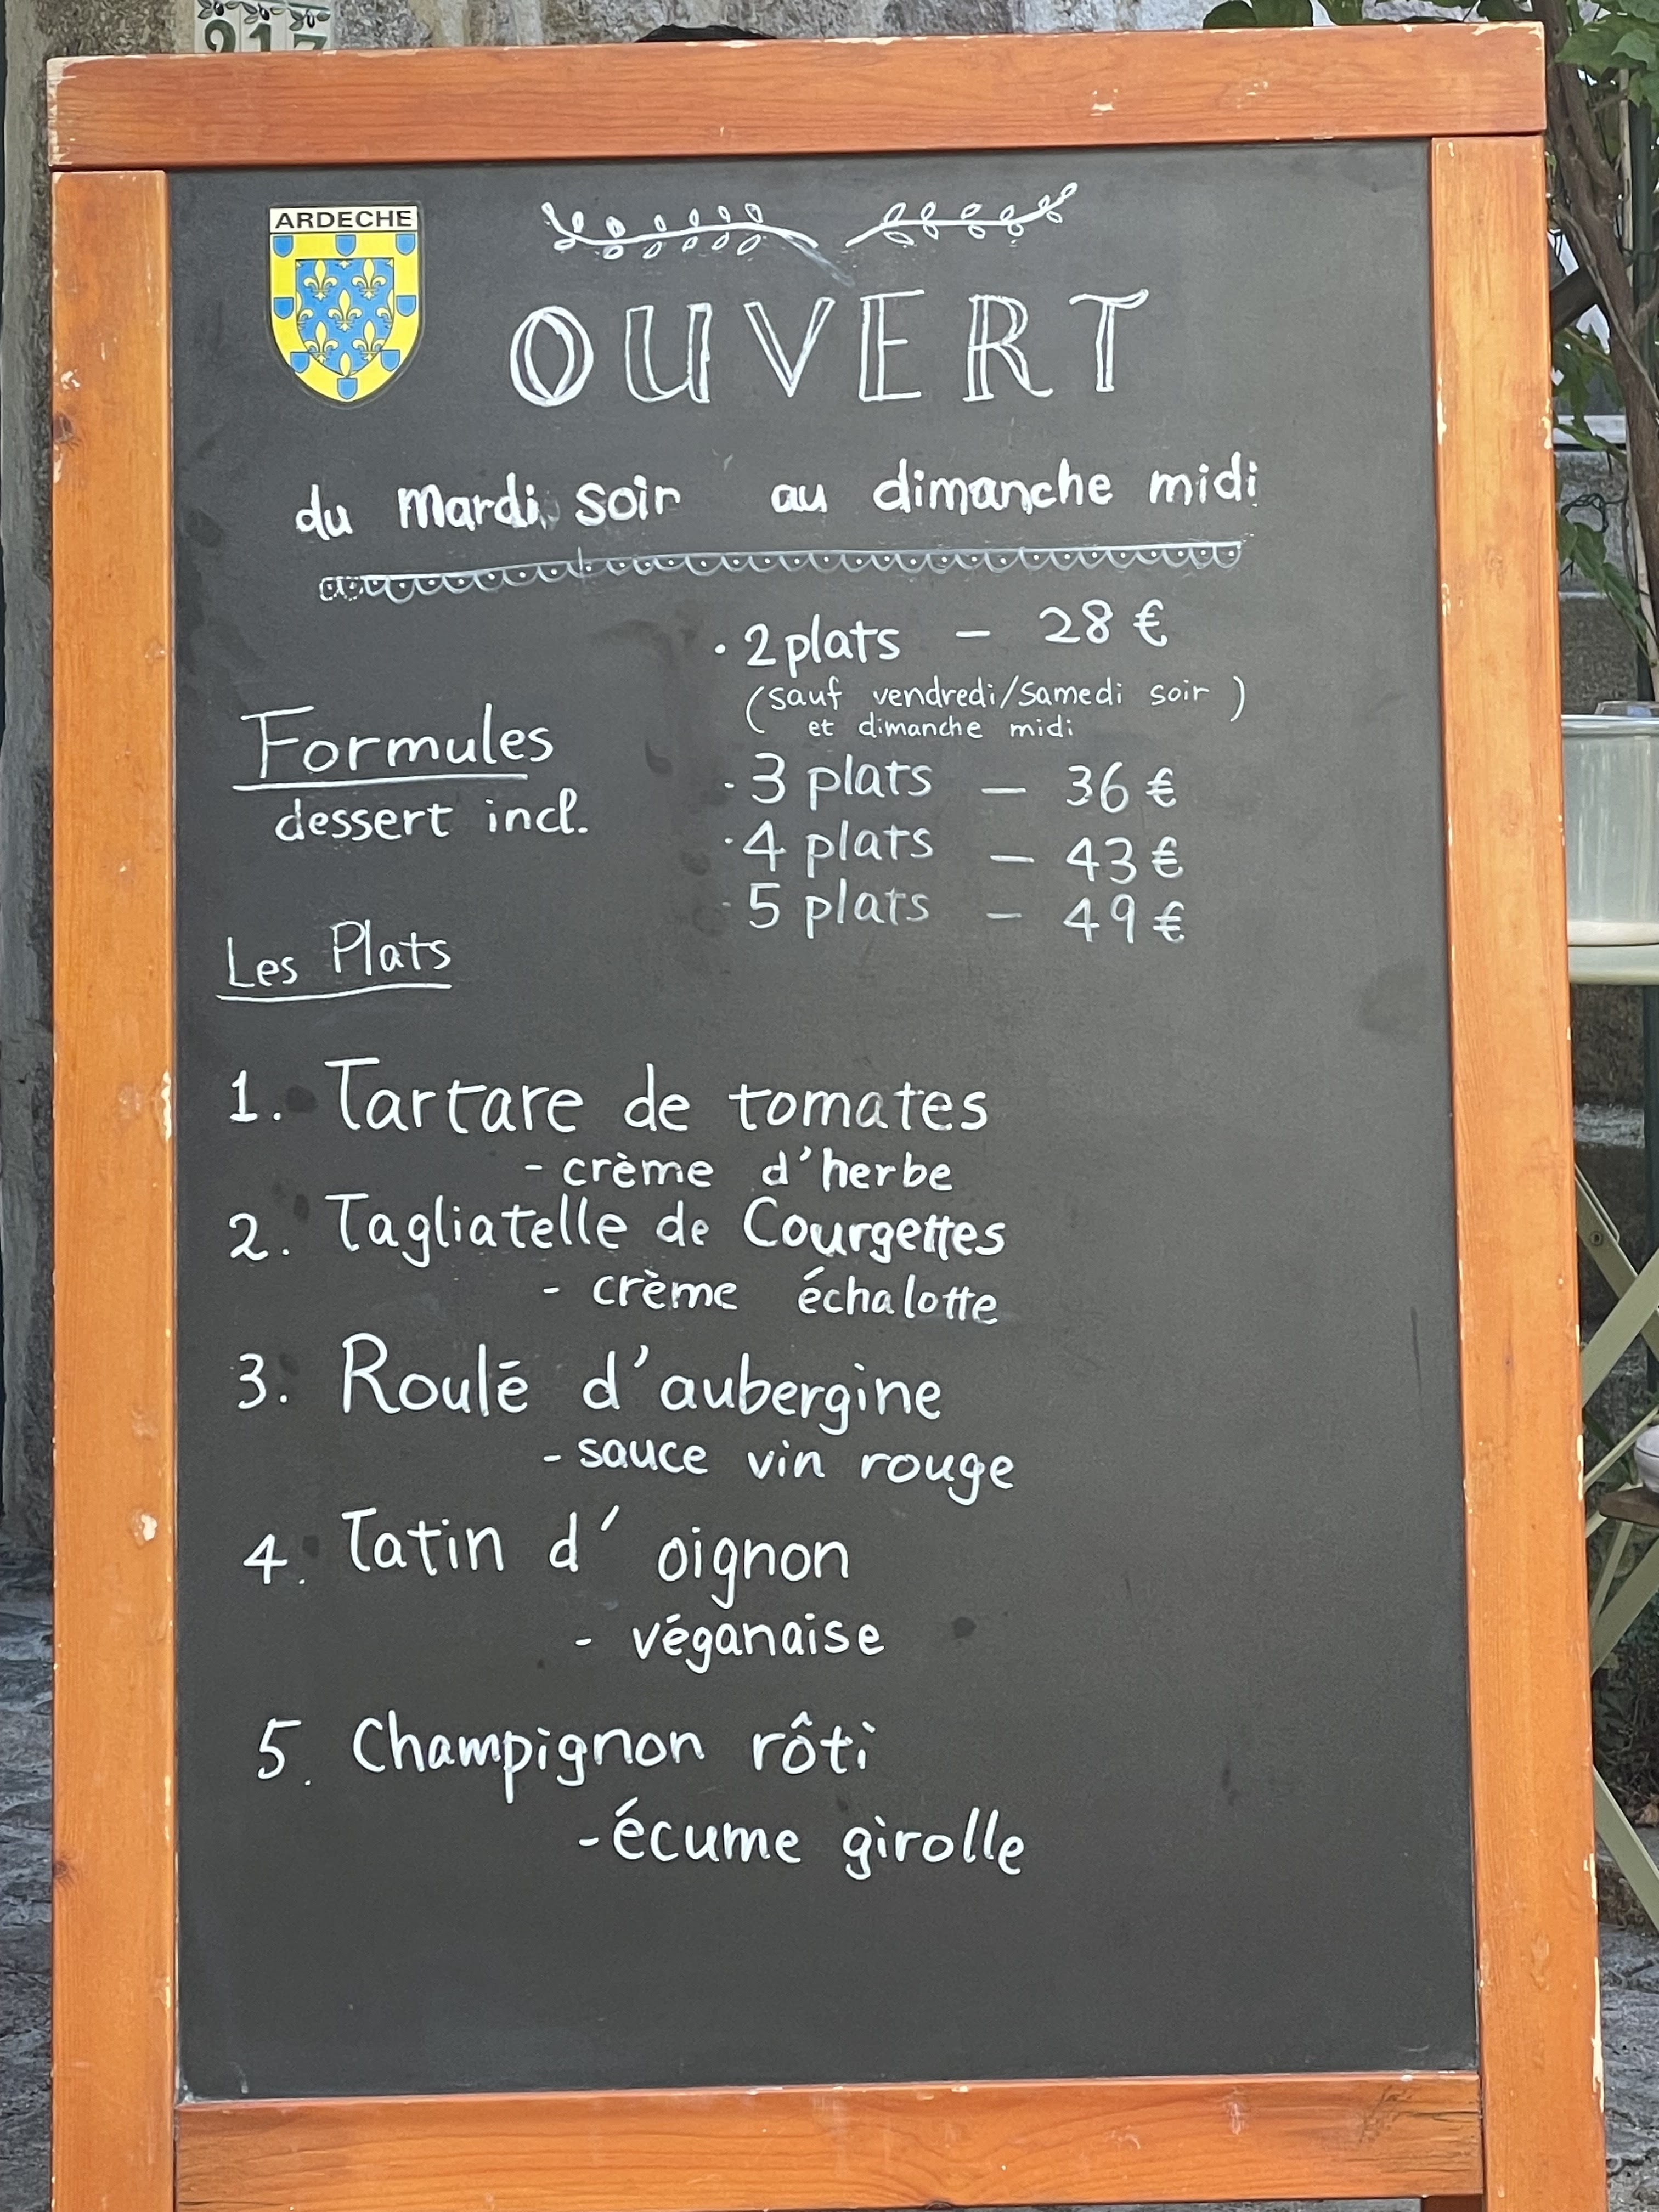 217
ARDECHE
OUVERT
du mardi soir au dimanche midi
· 2 plats – 28 €
(sauf vendredi/samedi soir)
et dimanche midi
Formules
dessert incl.
· 3 plats – 36 €
· 4 plats – 43 €
· 5 plats – 49 €
Les Plats
1. Tartare de tomates
- crème d'herbe
2. Tagliatelle de Courgettes
- crème échalotte
3. Roulé d'aubergine
- sauce vin rouge
4. Tatin d'oignon
- véganaise
5. Champignon rôti
- écume girolle